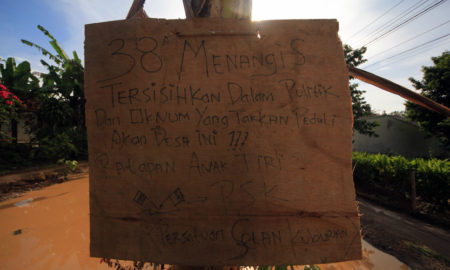 38 Menangis
Tersisihkan Dalam Politik
Dan Oknum Yang Takkan Peduli
Akan Desa ini !!!
Ratapan Anak Tiri
PSK
Persatuan Solan Kuburan